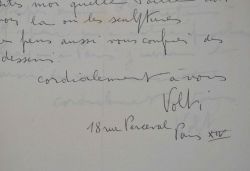 moi quelle
voir la ou les sculptures
je pense aussi vous confier des
dessins.
cordialement à vous
Volti
18 rue Perceval Paris XIV